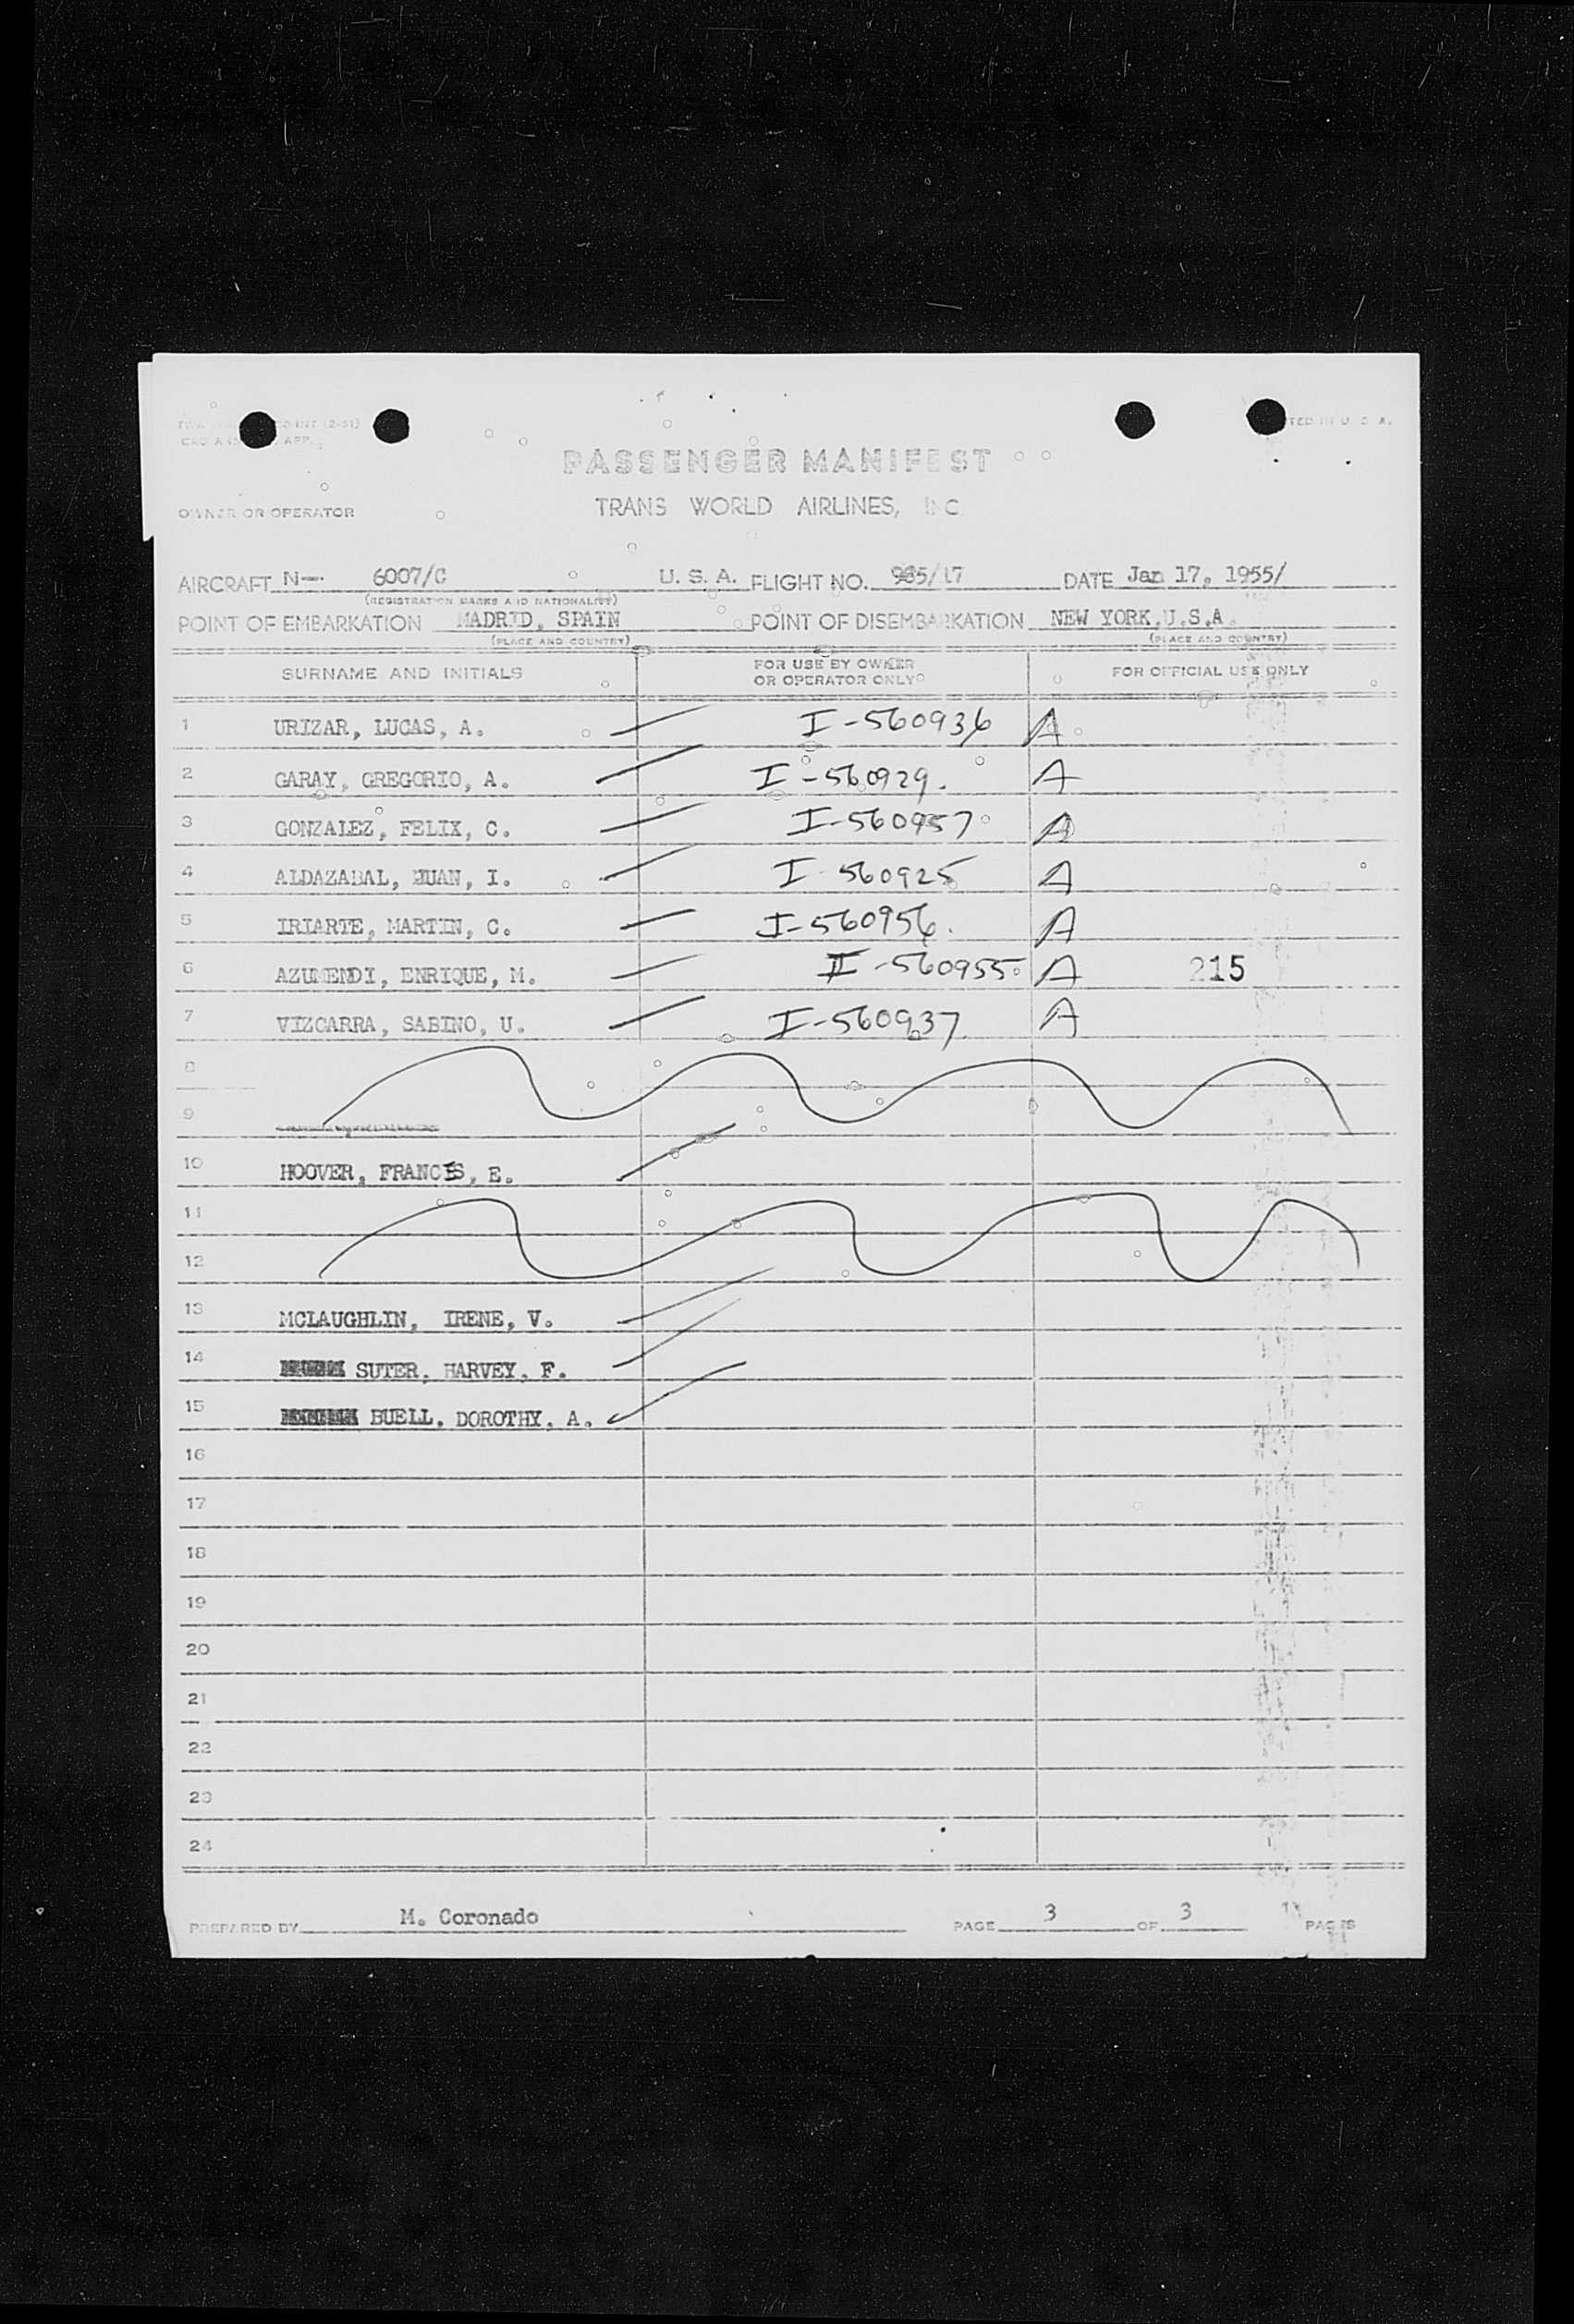 PASSENGER MANIFEST
TRANS WORLD AIRLINES, INC.
OWNER OR OPERATOR
AIRCRAFT N-- 6007/C U. S. A. FLIGHT NO. /17 DATE Jan 17, 1955/
(REGISTRATION MARKS AND NATIONALITY)
POINT OF EMBARKATION MADRID, SPAIN POINT OF DISEMBARKATION NEW YORK,U.S.A.
(PLACE AND COUNTRY) (PLACE AND COUNTRY)
SURNAME AND INITIALS FOR USE BY OWNER OR OPERATOR ONLY FOR OFFICIAL USE ONLY
1 URIZAR, LUCAS, A. I-560936 A
2 GARAY, GREGORIO, A. I-560929. A
3 GONZALEZ, FELIX, C. I-560957 A
4 ALDAZABAL, JUAN, I. I-560925 A
5 IRIARTE, MARTIN, C. I-560956. A
6 AZUMENDI, ENRIQUE, M. I-560955 A 215
7 VIZCARRA, SABINO, U. I-560937 A
8
9
10 HOOVER, FRANCES, E.
11
12
13 MCLAUGHLIN, IRENE, V.
14 SUTER, HARVEY, F.
15 BUELL, DOROTHY, A.
16
17
18
19
20
21
22
23
24
PREPARED BY M. Coronado PAGE 3 OF 3 PAGES